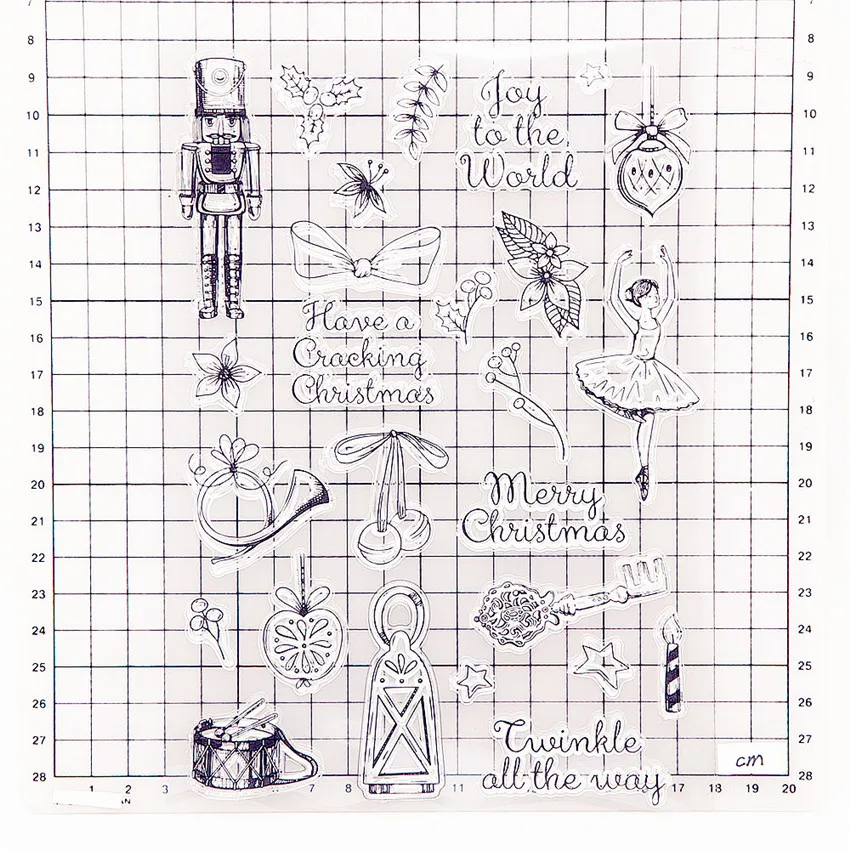 7
7
8
8
9
9
10
10
11
11
12
12
13
13
14
14
15
15
16
16
17
17
18
18
19
19
20
20
21
21
22
22
23
23
24
24
25
25
26
26
27
27
28
28
Joy
to the
World
Have a
Cracking
Christmas
Merry
Christmas
Twinkle
all the way
cm
1 2 3 7 8 11 17 18 19 20
AN